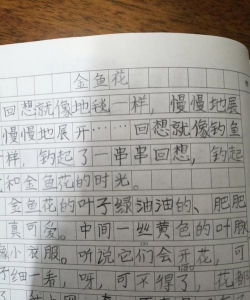 金鱼花
回想就像地毯一样，慢慢地展
慢慢地展开……回想就像钓鱼
样，钓起了一串串回想，钓起
和金鱼花的时光。
金鱼花的叶子绿油油的、肥肥
真可爱。中间一丝黄色的叶脉
像小衣服。听说它们会开花，可
仔细一看，呀，可不得了，花